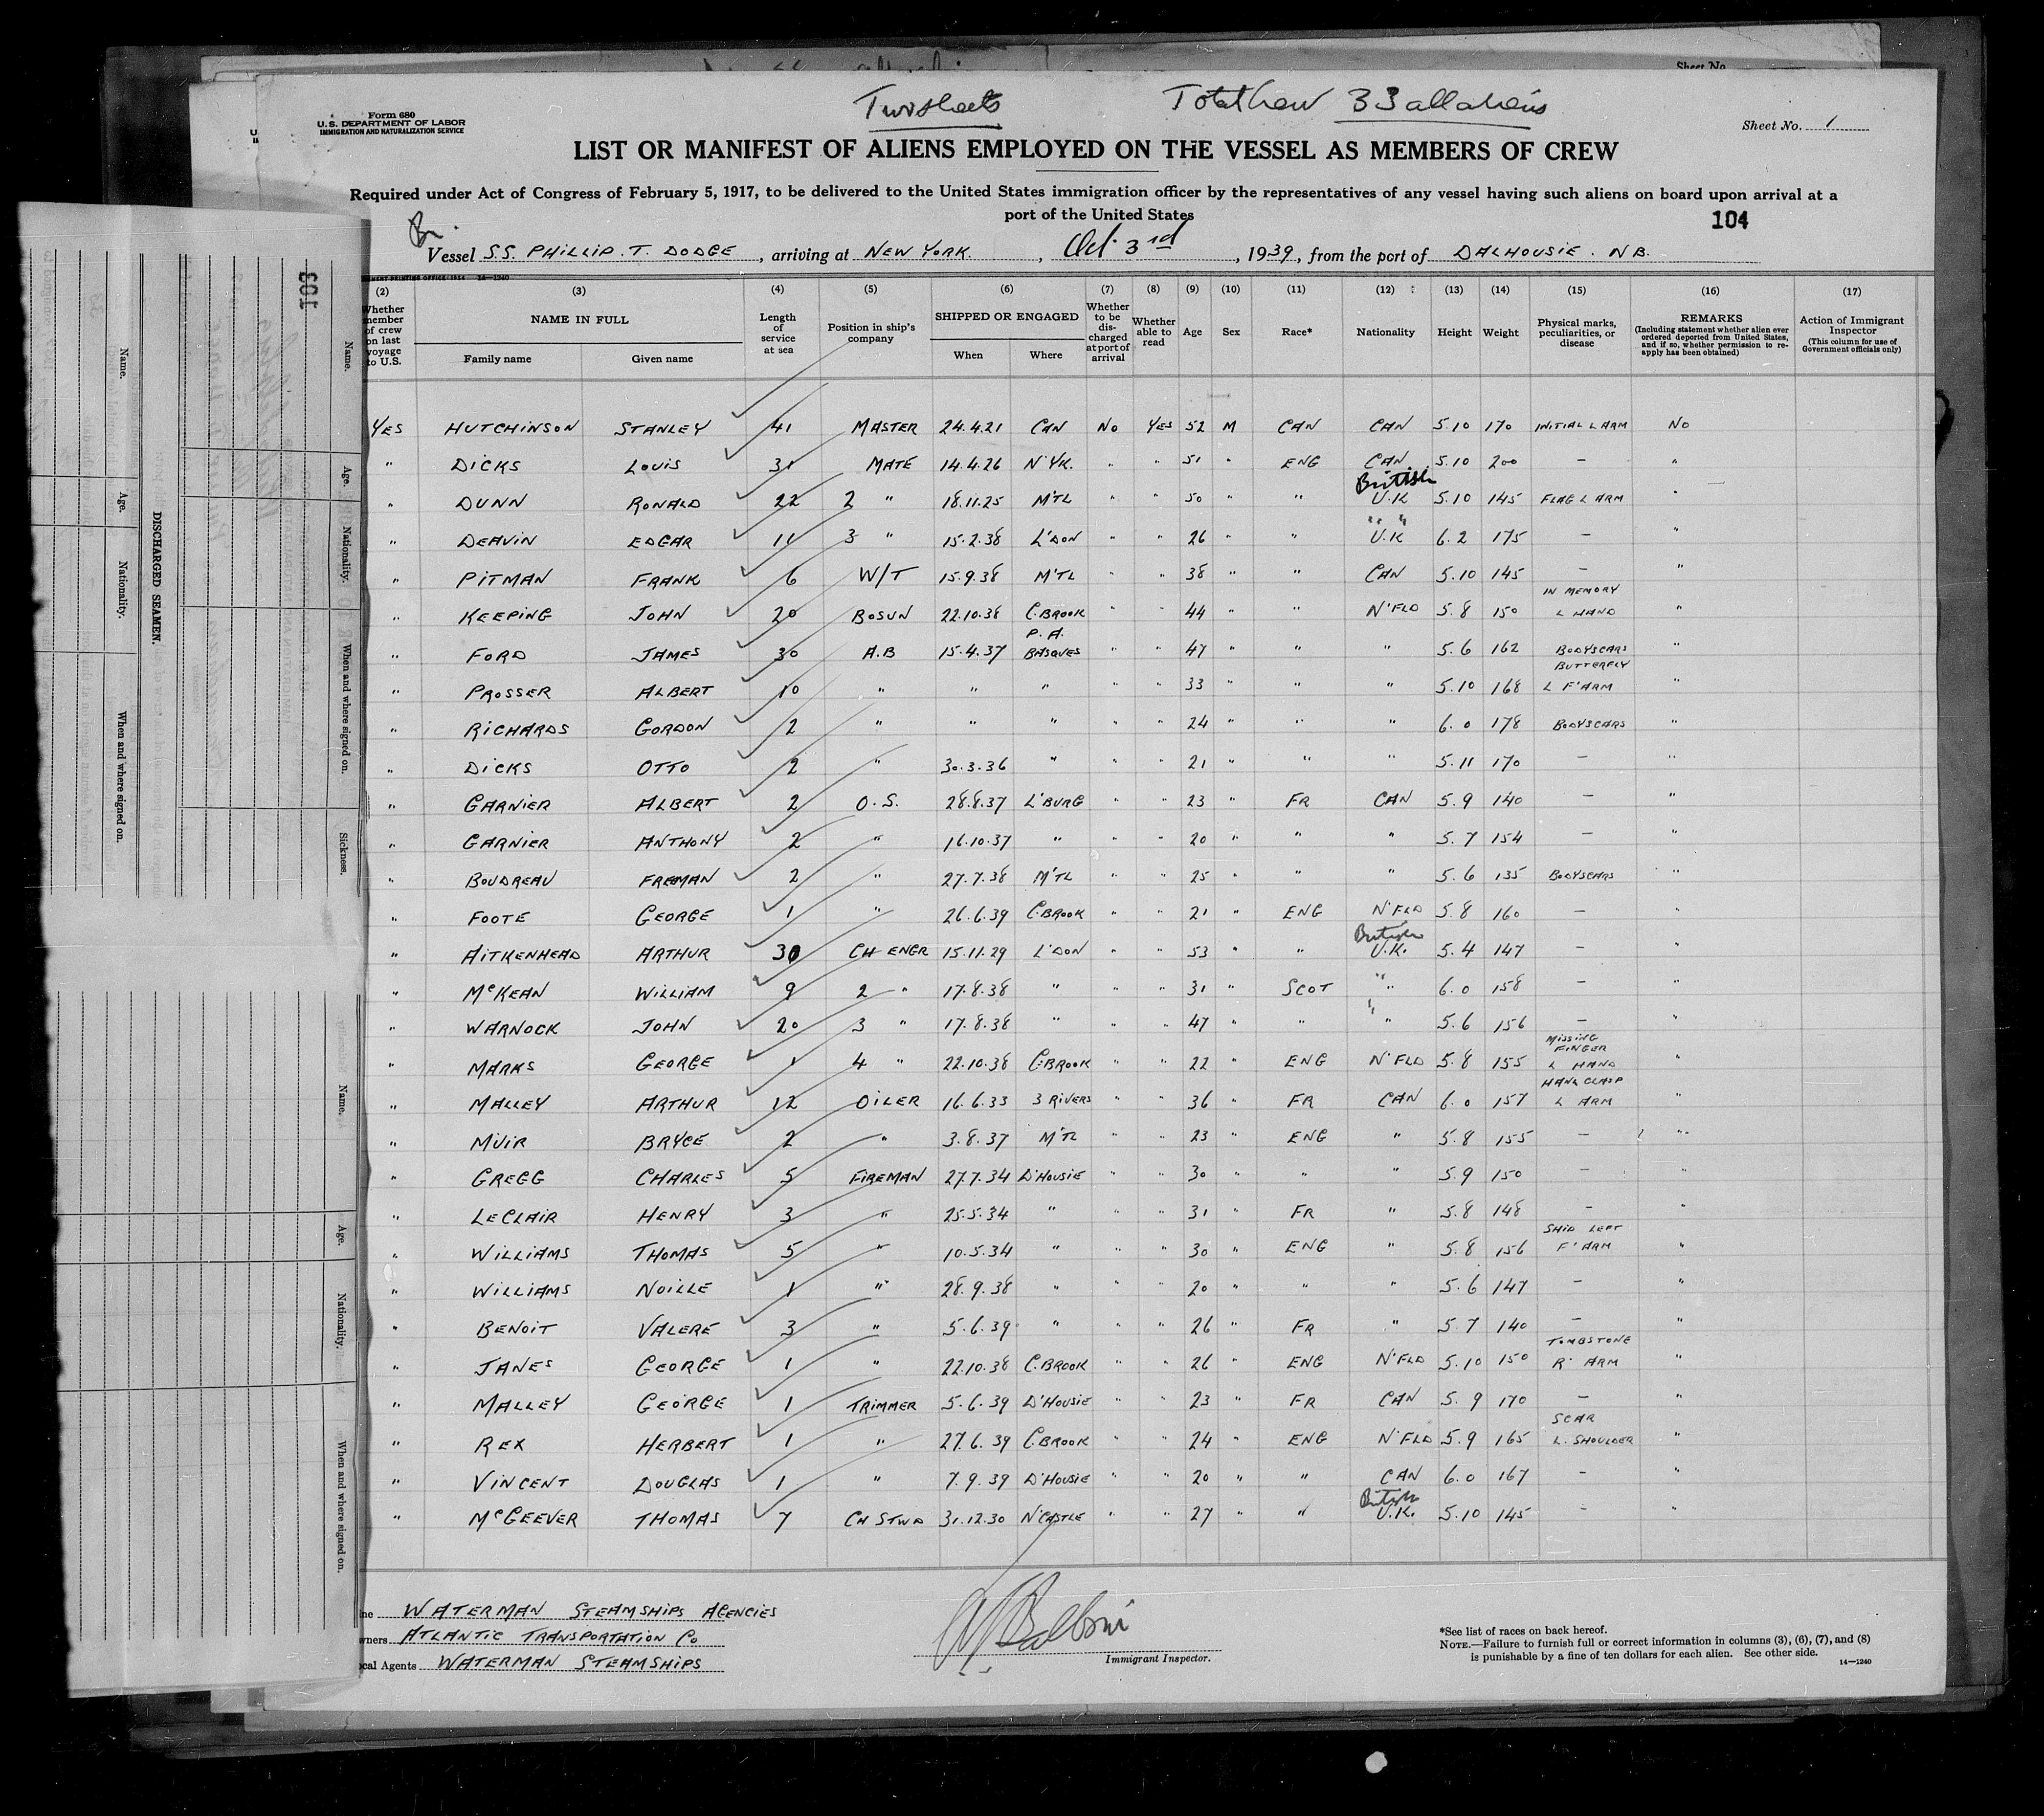 Sheet No.
Two sheets Total Crew 33 all aliens
Form 680
U.S. DEPARTMENT OF LABOR
IMMIGRATION AND NATURALIZATION SERVICE
Sheet No. 1
LIST OR MANIFEST OF ALIENS EMPLOYED ON THE VESSEL AS MEMBERS OF CREW
Required under Act of Congress of February 5, 1917, to be delivered to the United States immigration officer by the representatives of any vessel having such aliens on board upon arrival at a
port of the United States
104
Br.
Vessel S.S. PHILLIP. T. DODGE, arriving at NEW YORK., Oct 3rd, 1939, from the port of DALHOUSIE. NB.
14—1240
(2) (3) (4) (5) (6) (7) (8) (9) (10) (11) (12) (13) (14) (15) (16) (17)
Whether member of crew on last voyage to U.S. NAME IN FULL Family name Given name Length of service at sea Position in ship's company SHIPPED OR ENGAGED When Where Whether to be discharged at port of arrival Whether able to read Age Sex Race* Nationality Height Weight Physical marks, peculiarities, or disease REMARKS (Including statement whether alien ever ordered deported from United States, and if so, whether permission to reapply has been obtained) Action of Immigrant Inspector (This column for use of Government officials only)
YES HUTCHINSON STANLEY 41 MASTER 24.4.21 CAN NO YES 52 M CAN CAN 5.10 170 INITIAL L ARM NO
" DICKS LOUIS 31 MATE 14.4.26 N'YK. " " 51 " ENG CAN 5.10 200 — "
" DUNN RONALD 22 2 " 18.11.25 M'TL " " 50 " " British U.K 5.10 145 FLAG L ARM "
" DEAVIN EDGAR 11 3 " 15.2.38 L'DON " " 26 " " " " U.K 6.2 175 — "
" PITMAN FRANK 6 W/T 15.9.38 M'TL " " 38 " " CAN 5.10 145 — "
" KEEPING JOHN 20 BOSUN 22.10.38 C.BROOK " " 44 " " N'FLD 5.8 150 IN MEMORY L HAND "
" FORD JAMES 30 A.B 15.4.37 P.A. BASQUES " " 47 " " " 5.6 162 BODYSCARS "
" PROSSER ALBERT 10 " " " " " 33 " " " 5.10 168 BUTTERFLY L F'ARM "
" RICHARDS GORDON 2 " " " " " 24 " " " 6.0 178 BODYSCARS "
" DICKS OTTO 2 " 30.3.36 " " " 21 " " " 5.11 170 — "
" GARNIER ALBERT 2 O.S. 28.8.37 L'BURG " " 23 " FR CAN 5.9 140 — "
" GARNIER ANTHONY 2 " 16.10.37 " " " 20 " " " 5.7 154 — "
" BOUDREAU FREEMAN 2 " 27.7.38 M'TL " " 25 " " " 5.6 135 BODYSCARS "
" FOOTE GEORGE 1 " 26.6.39 C.BROOK " " 21 " ENG N'FLD 5.8 160 — "
" AITKENHEAD ARTHUR 30 CH ENGR 15.11.29 L'DON " " 53 " " British U.K. 5.4 147 — "
" McKEAN WILLIAM 9 2 " 17.8.38 " " " 31 " SCOT " " 6.0 158 — "
" WARNOCK JOHN 20 3 " 17.8.38 " " " 47 " " " " 5.6 156 — "
" MARKS GEORGE 1 4 " 22.10.38 C.BROOK " " 22 " ENG N'FLD 5.8 155 MISSING FINGER L HAND "
" MALLEY ARTHUR 12 OILER 16.6.33 3 RIVERS " " 36 " FR CAN 6.0 157 HAND CLASP L ARM "
" MUIR BRYCE 2 " 3.8.37 M'TL " " 23 " ENG " 5.8 155 — "
" GREGG CHARLES 5 FIREMAN 27.7.34 D'HOUSIE " " 30 " " " 5.9 150 — "
" LECLAIR HENRY 3 " 25.5.34 " " " 31 " FR " 5.8 148 — "
" WILLIAMS THOMAS 5 " 10.5.34 " " " 30 " ENG " 5.8 156 SHIP LEFT F'ARM "
" WILLIAMS NOILLE 1 " 28.9.38 " " " 20 " " " 5.6 147 — "
" BENOIT VALERE 3 " 5.6.39 " " " 26 " FR " 5.7 140 — "
" JANES GEORGE 1 " 22.10.38 C.BROOK " " 26 " ENG N'FLD 5.10 150 TOMBSTONE R. ARM "
" MALLEY GEORGE 1 TRIMMER 5.6.39 D'HOUSIE " " 23 " FR CAN 5.9 170 — "
" REX HERBERT 1 " 27.6.39 C.BROOK " " 24 " ENG N'FLD 5.9 165 SCAR L. SHOULDER "
" VINCENT DOUGLAS 1 " 7.9.39 D'HOUSIE " " 20 " " CAN 6.0 167 — "
" McGEEVER THOMAS 7 CH STWD 31.12.30 N'CASTLE " " 27 " " British U.K. 5.10 145 — "
WATERMAN STEAMSHIPS AGENCIES
ATLANTIC TRANSPORTATION CO
WATERMAN STEAMSHIPS
Immigrant Inspector.
*See list of races on back hereof.
NOTE.—Failure to furnish full or correct information in columns (3), (6), (7), and (8)
is punishable by a fine of ten dollars for each alien. See other side.
14—1240
103
DISCHARGED SEAMEN.
Name. Age. Nationality. When and where signed on.
Name. Age. Nationality. When and where signed on. Sickness.
Name. Age. Nationality. When and where signed on.